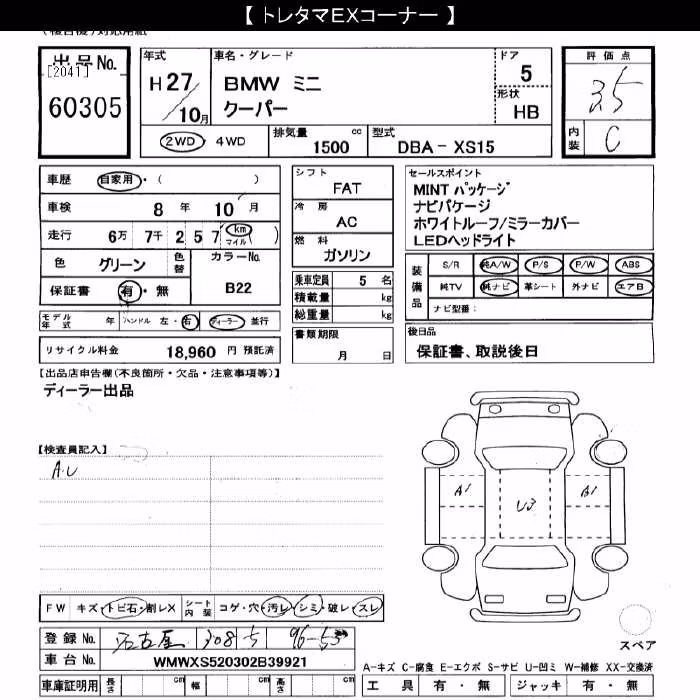 【 トレタマEXコーナー 】
出品No.
[2041]
60305
年式
H27/10月
車名・グレード
BMW ミニ
クーパー
ドア
5
形状
HB
2WD・4WD
排気量 1500 cc
型式 DBA－XS15
評価点
3.5
内装 C
車歴 自家用・( )
車検 8年 10月
走行 6万 7千 2 5 7 (km マイル)
色 グリーン 色替
カラーNo. B22
保証書 有・無
モデル年式 年 ハンドル 左・右 ディーラー 並行
リサイクル料金 18,960 円 預託済
シフト
FAT
冷房
AC
燃料
ガソリン
乗車定員 5 名
積載量 kg
総重量 kg
書類期限
月 日
セールスポイント
MINT パッケージ
ナビパケージ
ホワイトルーフ/ミラーカバー
LEDヘッドライト
装備品
S/R 純A/W P/S P/W ABS
純TV 純ナビ 革シート 外ナビ エアB
ナビ型番：
後日品
保証書、取説後日
【出品店申告欄(不良箇所・欠品・注意事項等)】
ディーラー出品
【検査員記入】
A.U
A1
U3
B1
FW キズ・トビ石・割レX
シート内装 コゲ・穴・汚レ・シミ・破レ・スレ
登録No. 名古屋 308 ち 96-53
車台No. WMWXS520302B39921
車庫証明用 長さ cm 幅 cm 高さ cm
スペア
A-キズ C-腐食 E-エクボ S-サビ U-凹ミ W-補修 XX-交換済
工具 有・無 ジャッキ 有・無